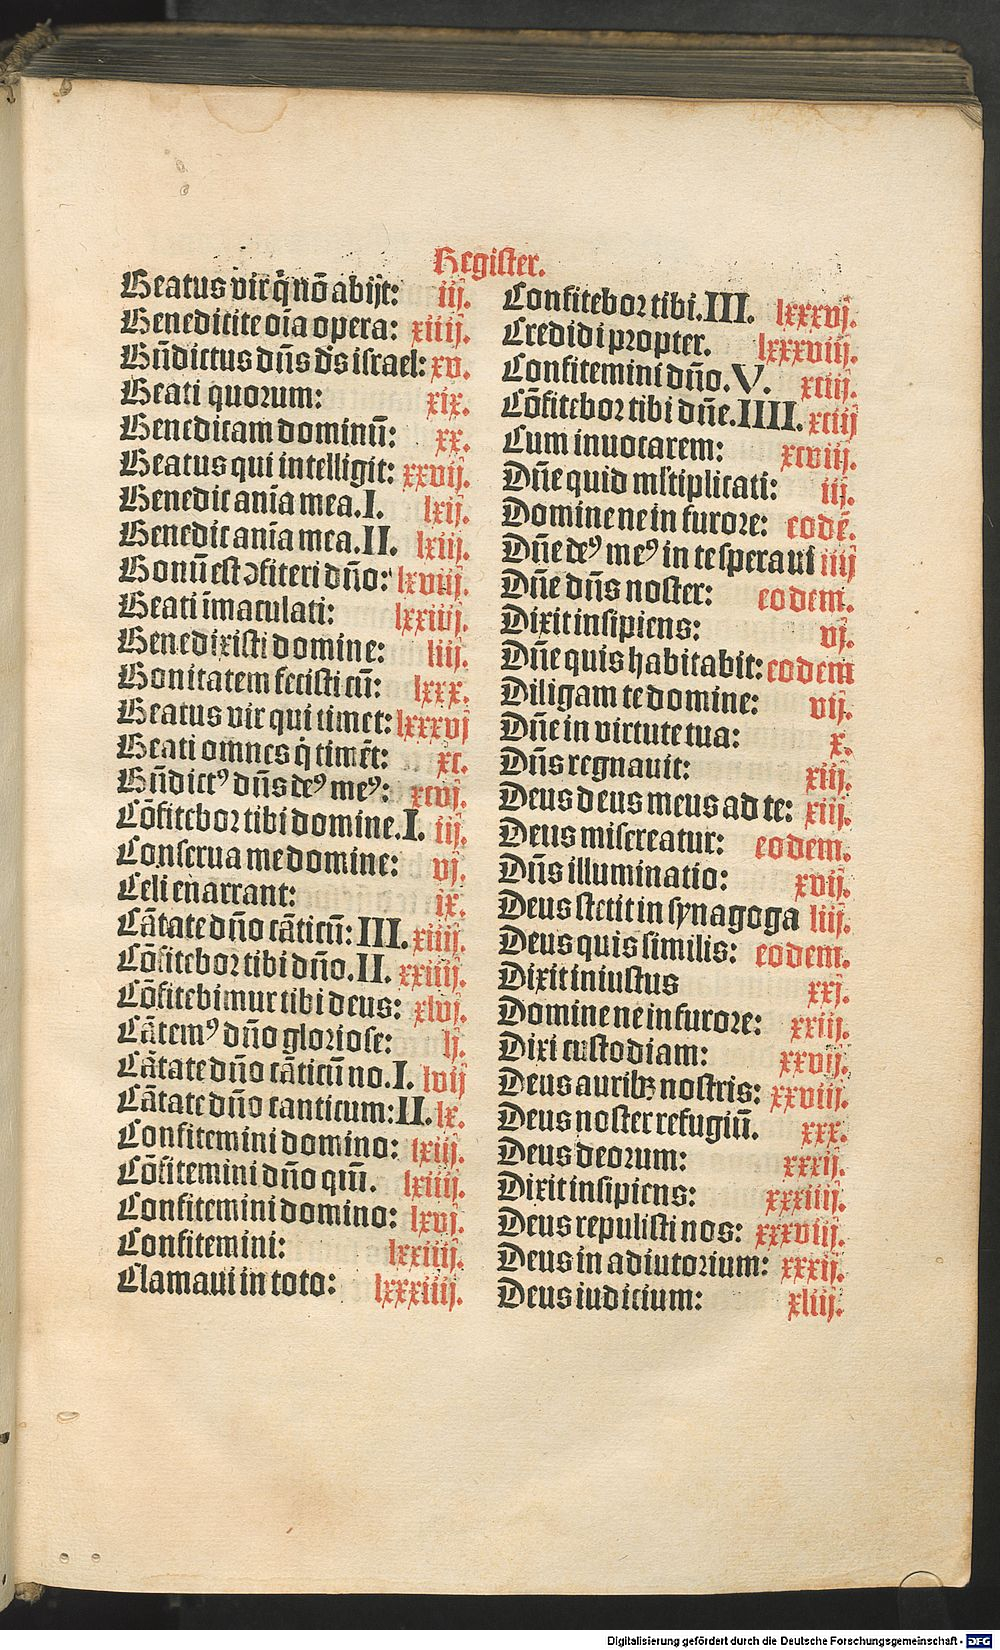 Register.
Beatus vir q̃ nõ abijt: iij.
Benedicite oĩa opera: xiiij.
Bñdictus dñs ds̃ israel: xv.
Beati quorum: xix.
Benedicam dominũ: xx.
Beatus qui intelligit: xxvij.
Benedic anĩa mea. I. lxij.
Benedic anĩa mea. II. lxiij.
Bonũ est ꝯfiteri dño: lxviij.
Beati ĩmaculati: lxxiiij.
Benedixisti domine: liij.
Bonitatem fecisti cũ: lxxx.
Beatus vir qui timet: lxxxvj
Beati om̃nes q̃ timẽt: xc.
Bñdictꝰ dñs deꝰ meꝰ: xcvj.
Cõfitebor tibi domine. I. iij.
Conserua me domine: vj.
Celi enarrant: ix.
Cãtate dño cãticũ: III. xiiij.
Cõfitebor tibi dño. II. xxiiij.
Cõfitebimur tibi deus: xlvj.
Cãtemꝰ dño gloriose: lj.
Cãtate dño cãticũ no. I. lvij
Cãtate dño canticum: II. lx.
Confitemini domino: lxiij.
Cõfitemini dño qm̃. lxiiij.
Confitemini domino: lxvj.
Confitemini: lxxiiij.
Clamaui in toto: lxxxiiij.
Confitebor tibi. III. lxxxvj.
Credidi propter. lxxxviij.
Confitemini dño. V. xciij.
Cõfitebor tibi dñe. IIII. xciij
Cum inuocarem: xcviij.
Dñe quid ml̃tiplicati: iij.
Domine ne in furore: eodẽ.
Dñe deꝰ meꝰ in te speraui iiij
Dñe dñs noster: eodem.
Dixit insipiens: vj.
Dñe quis habitabit: eodem
Diligam te domine: vij.
Dñe in virtute tua: x.
Dñs regnauit: xiij.
Deus deus meus ad te: xiij.
Deus misereatur: eodem.
Dñs illuminatio: xvij.
Deus stetit in synagoga liij.
Deus quis similis: eodem.
Dixit iniustus xxj.
Domine ne in furore: xxiij.
Dixi custodiam: xxvij.
Deus auribꝫ nostris: xxviij.
Deus noster refugiũ. xxx.
Deus deorum: xxxij.
Dixit insipiens: xxxiiij.
Deus repulisti nos: xxxviij.
Deus in adiutorium: xxxij.
Deus iudicium: xliij.
Digitalisierung gefördert durch die Deutsche Forschungsgemeinschaft - DFG